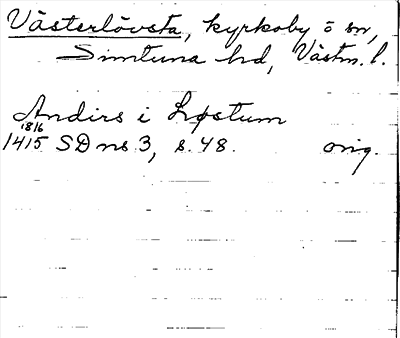 Västerlövsta, kyrkoby o sn,
Simtuna hd, Västm. l.
Andirs i Løstum
18/6
1415 SD ns 3, s. 48. orig.